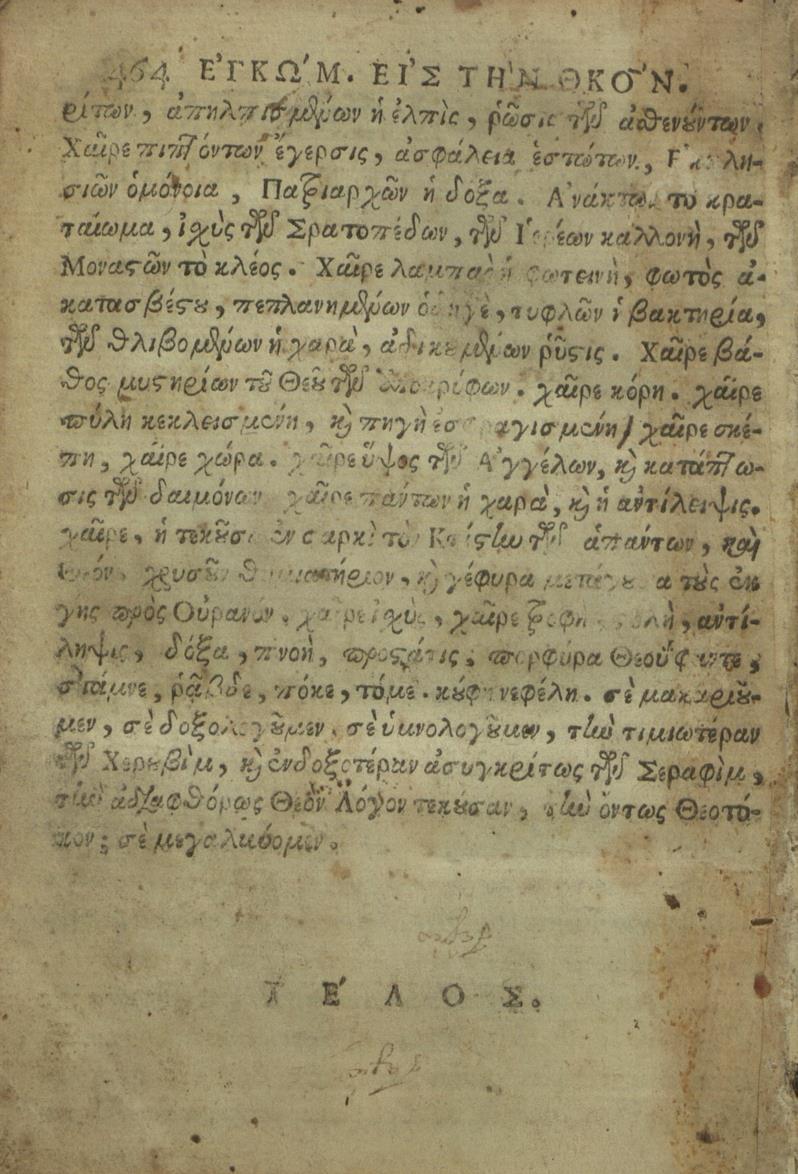 464 ΕΓΚΩ´Μ. ΕἸΣ ΤΗ`Ν ΘΚΟ´Ν.
ρίπων, ἀπηλπισμένων ἡ ἐλπὶς, ῥῶσις τῶν ἀσθενούντων.
Χαῖρε πιπτόντων ἔγερσις, ἀσφάλεια ἑστώτων, Ἐκκλη-
σιῶν ὁμόνοια, Πατριαρχῶν ἡ δόξα. Ἀνάκτων τὸ κρα-
ταίωμα, ἰχὺς τῶν Στρατοπέδων, τῶν Ἱερέων καλλονὴ, τῶν
Μοναστῶν τὸ κλέος. Χαῖρε λαμπὰς ἡ φωτεινὴ, φωτὸς ἀ-
κατασβέστου, πεπλανημένων ὁδηγὲ, τυφλῶν ἡ βακτηρία,
τῶν θλιβομένων ἡ χαρὰ, ἀδικεμένων ῥῦσις. Χαῖρε βά-
θος μυστηρίων τοῦ Θεοῦ τῶν ἀποκρύφων. χαῖρε κόρη. χαῖρε
πύλη κεκλεισμένη, καὶ πηγὴ ἐσφραγισμένη, χαῖρε σκέ-
πη, χαῖρε χώρα. χαῖρε ὕψος τῶν Ἀγγέλων, καὶ κατάπτω-
σις τῶν δαιμόνων χαῖρε πάντων ἡ χαρὰ, καὶ ἡ ἀντίλειψις.
χαῖρε, ἡ τεκοῦσα ἐν σαρκὶ τὸν Κτίστην τῶν ἁπάντων, καὶ
χρυσοῦν θυμιατήριον, καὶ γέφυρα μετάγουσα τοὺς ἐκ
γῆς πρὸς Οὐρανόν. χαῖρε ἰχὺς, χαῖρε τροφὴ, στολὴ, ἀντί-
ληψις, δόξα, πνοὴ, προστάτις, πορφύρα Θεοΰφαντε,
στάμνε, ῥάβδε, πόκε, τόμε. κούφη νεφέλη. σὲ μακαριοῦ-
μεν, σὲ δοξολογοῦμεν, σὲ ὑμνολογοῦμεν, τὴν τιμιωτέραν
τῶν Χερουβὶμ, καὶ ἐνδοξοτέραν ἀσυγκρίτως τῶν Σεραφὶμ,
τὴν ἀδιαφθόρως Θεὸν Λόγον τεκοῦσαν, τὴν ὄντως Θεοτό-
κον; σὲ μεγαλύνομεν.
ΤΕ´ΛΟΣ.